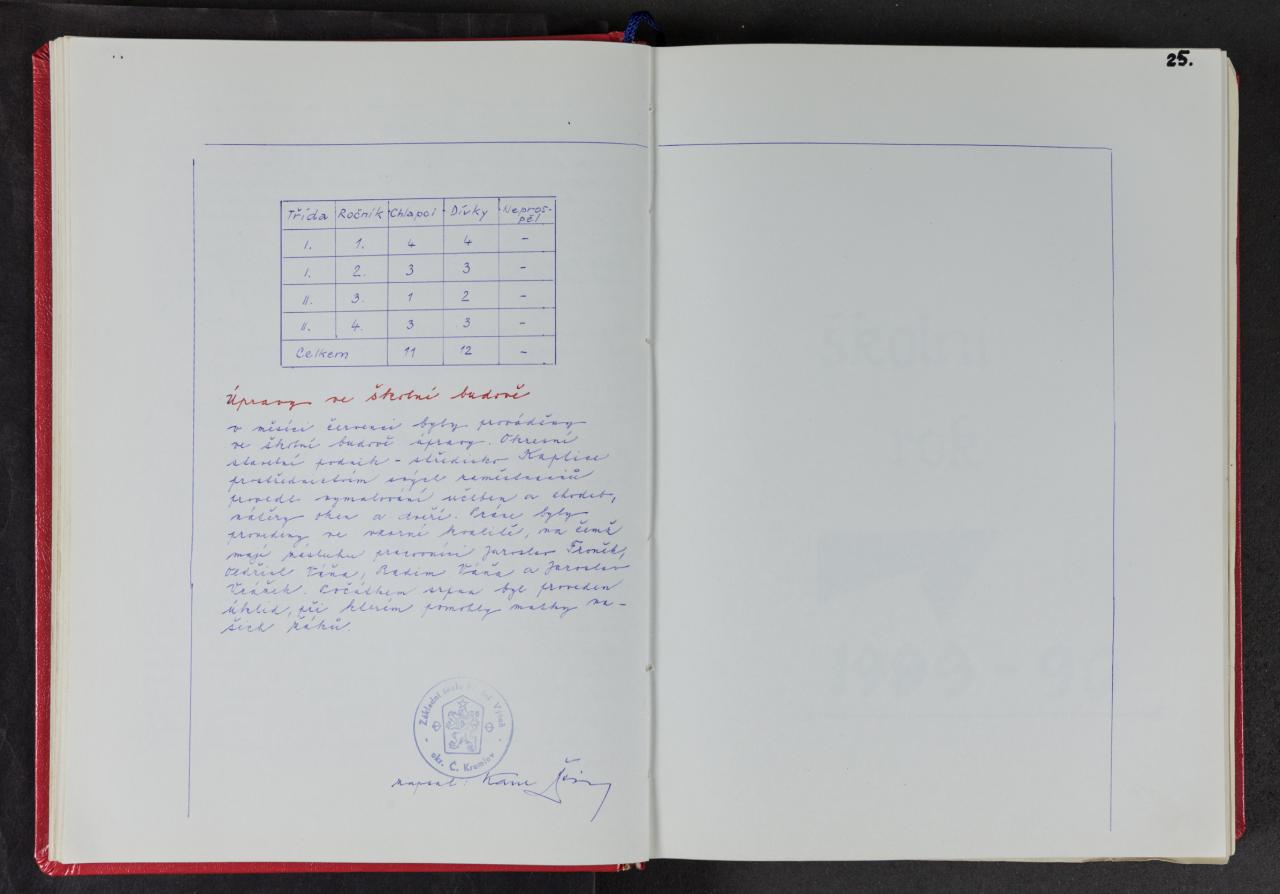 25.
Třída Ročník Chlapci Dívky Nepros-
pěl
I. 1. 4 4 -
I. 2. 3 3 -
II. 3. 1 2 -
II. 4. 3 3 -
Celkem 11 12 -
Úpravy ve školní budově
V měsíci červenci byly prováděny
ve školní budově úpravy. Okresní
stavební podnik - středisko Kaplice
prostřednictvím svých zaměstnanců
provedl vymalování učeben a chodeb,
nátěry oken a dveří. Práce byly
provedeny ve vzorné kvalitě, na čemž
mají zásluhu pracovníci Jaroslav
Oldřich Váňa, Radim Váňa a Jaroslav
Počátkem srpna byl proveden
úklid, při kterém pomohly matky na-
šich žáků.
Základní škola
okr. Č. Krumlov
zapsal:
školní
rok
1989 - 90